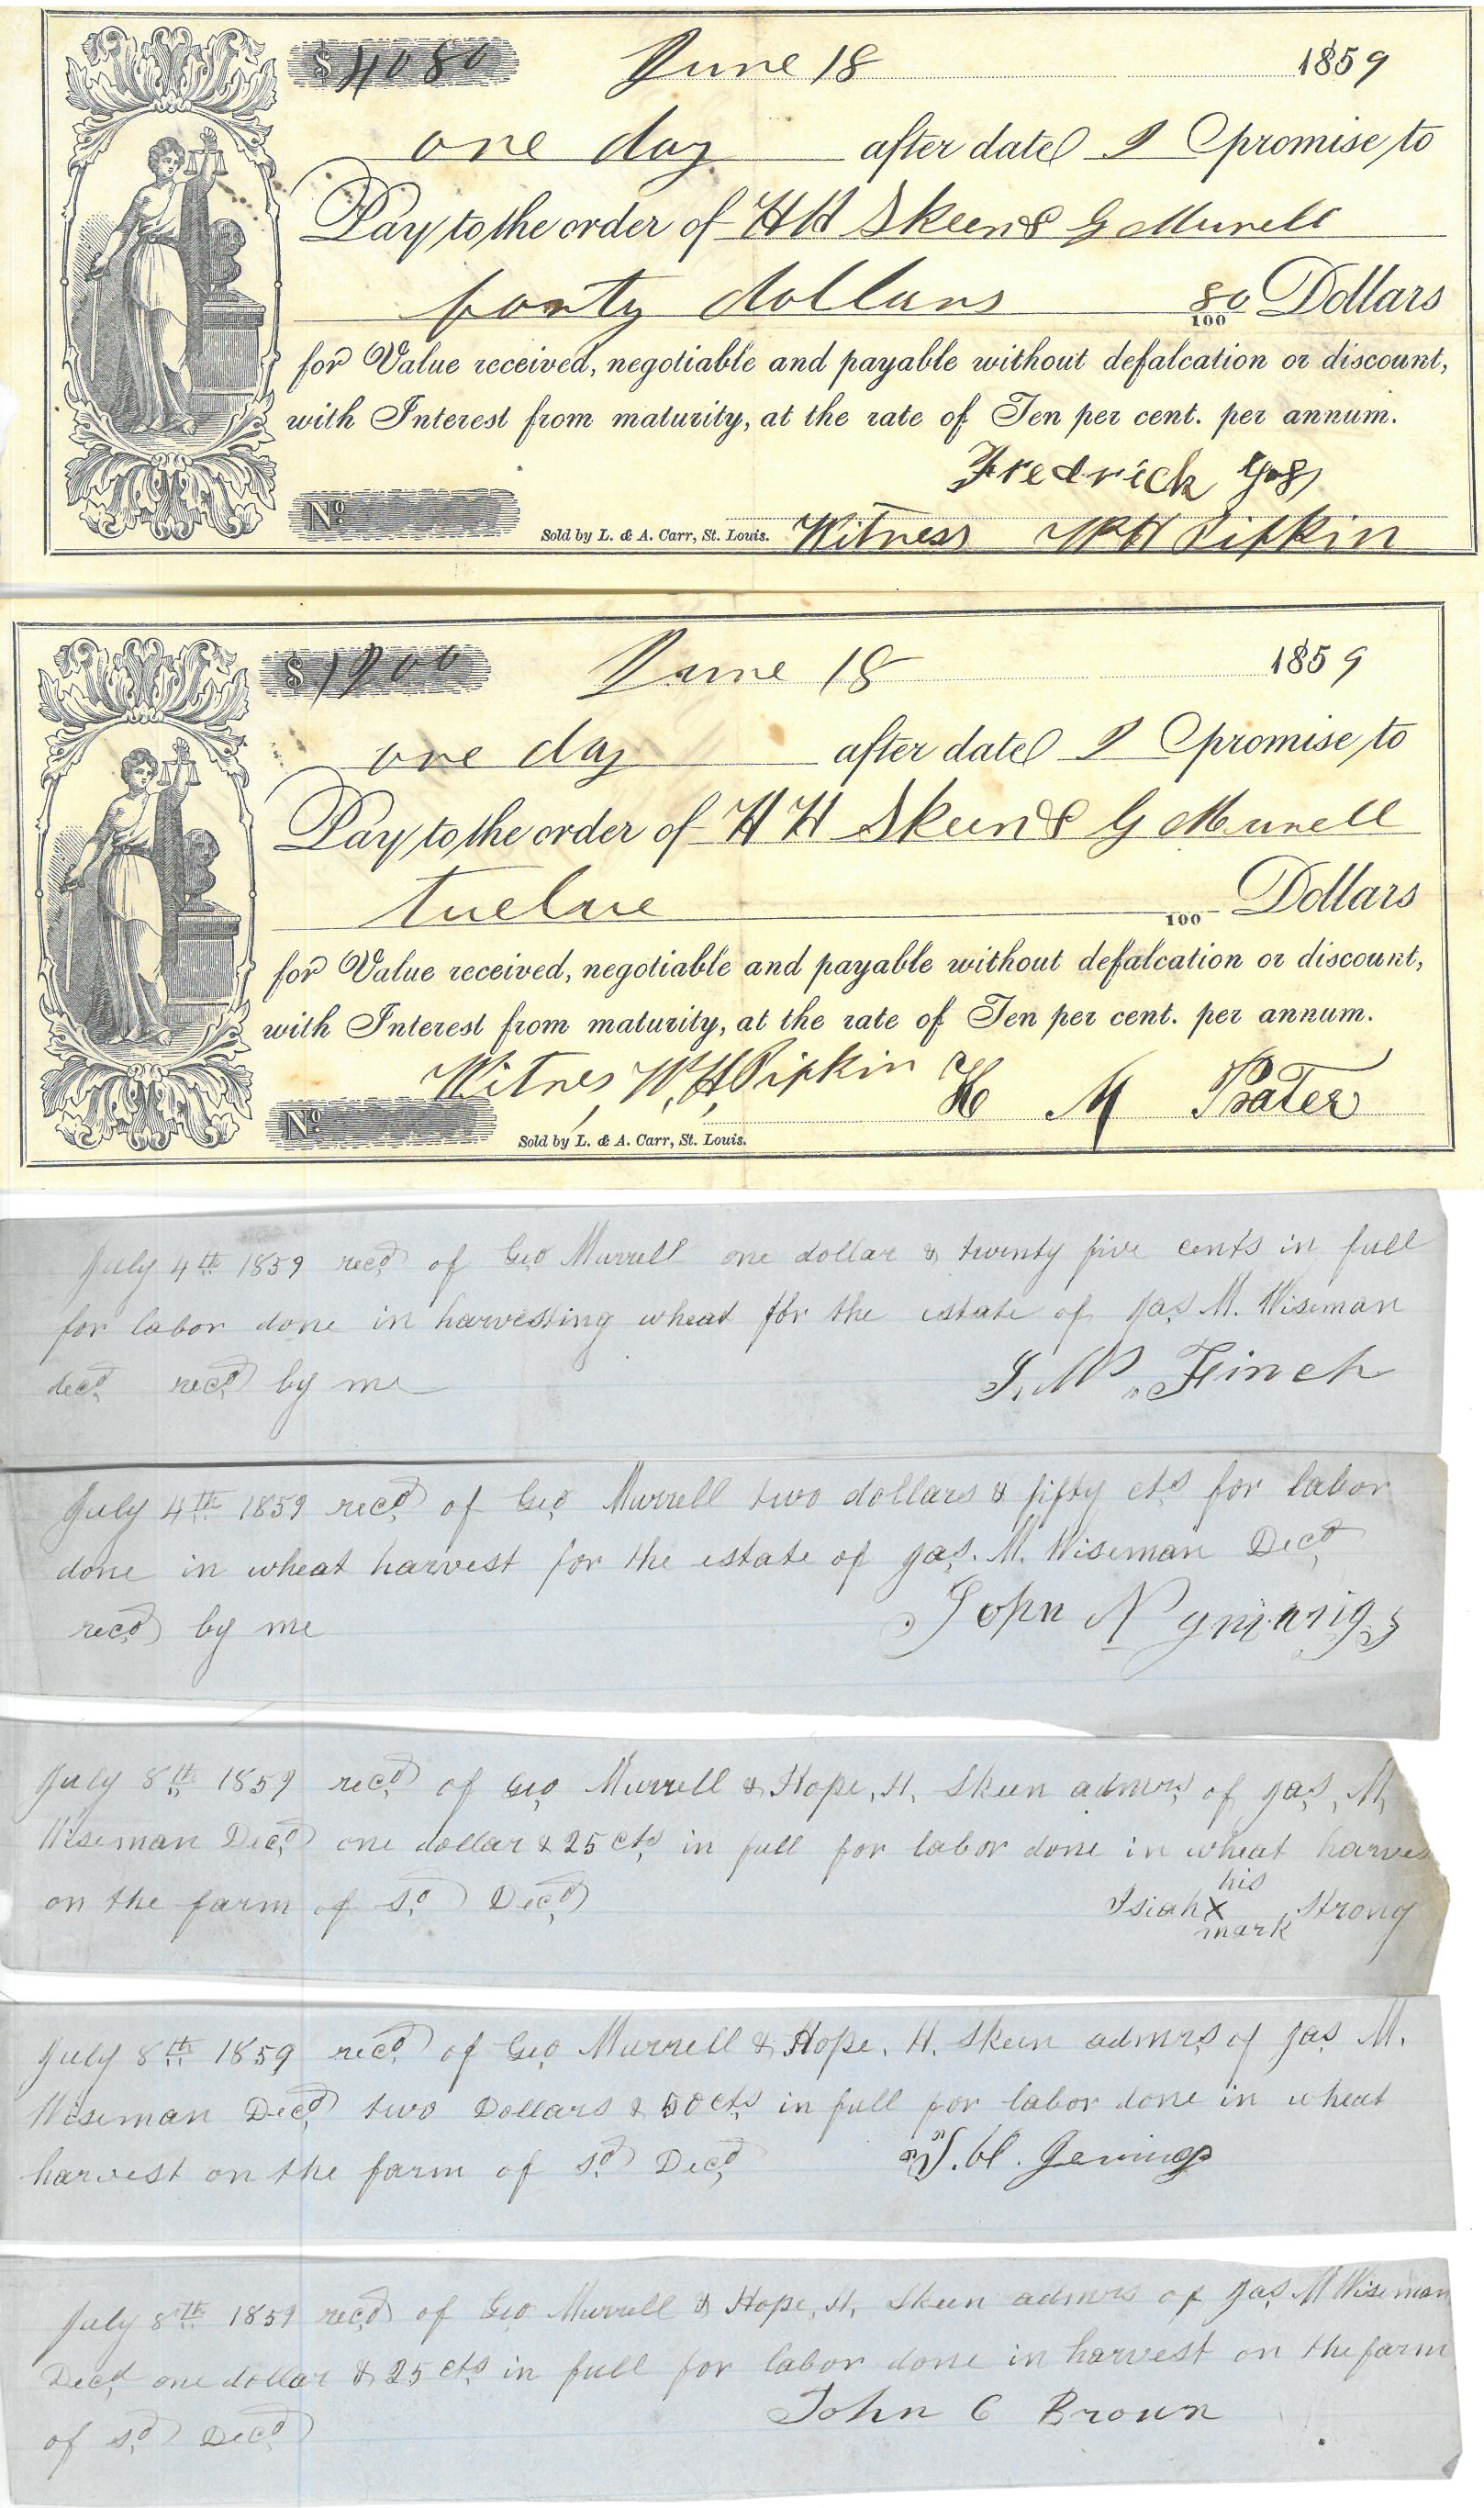 $ 40 80 June 18 1859
one day after date I promise to
Pay to the order of H H Skeen & G Murell
forty dollars 80/100 Dollars
for Value received, negotiable and payable without defalcation or discount,
with Interest from maturity, at the rate of Ten per cent. per annum.
Fredrick
No. Sold by L. & A. Carr, St. Louis. Witness W H Pipkin
$ 12 00 June 18 1859
one day after date I promise to
Pay to the order of H H Skeen & G Murell
twelve 100 Dollars
for Value received, negotiable and payable without defalcation or discount,
with Interest from maturity, at the rate of Ten per cent. per annum.
Witnes, W, H, Pipkin H M Prater
No. Sold by L. & A. Carr, St. Louis.
July 4th 1859 recd of Geo Murrell one dollar & twenty five cents in full
for labor done in harvesting wheat for the estate of Jas M. Wiseman
decd recd by me J. W. Finch
July 4th 1859 recd of Geo Murrell two dollars & fifty cts for labor
done in wheat harvest for the estate of Jas. M. Wiseman Decd
recd by me John N
July 8th 1859 recd of Geo Murrell & Hope, H, Skeen admrs of Jas, M,
Wiseman Decd one dollar & 25 cts in full for labor done in wheat harves
on the farm of sd Decd Isiah his X mark Strong
July 8th 1859 recd of Geo Murrell & Hope, H. Skeen admrs of Jas M.
Wiseman Decd two Dollars & 50 cts in full for labor done in wheat
harvest on the farm of sd Decd H. Jenings
July 8th 1859 recd of Geo Murrell & Hope, H, Skeen admrs of Jas M Wiseman
Decd one dollar & 25 cts in full for labor done in harvest on the farm
of sd Decd John C Brown